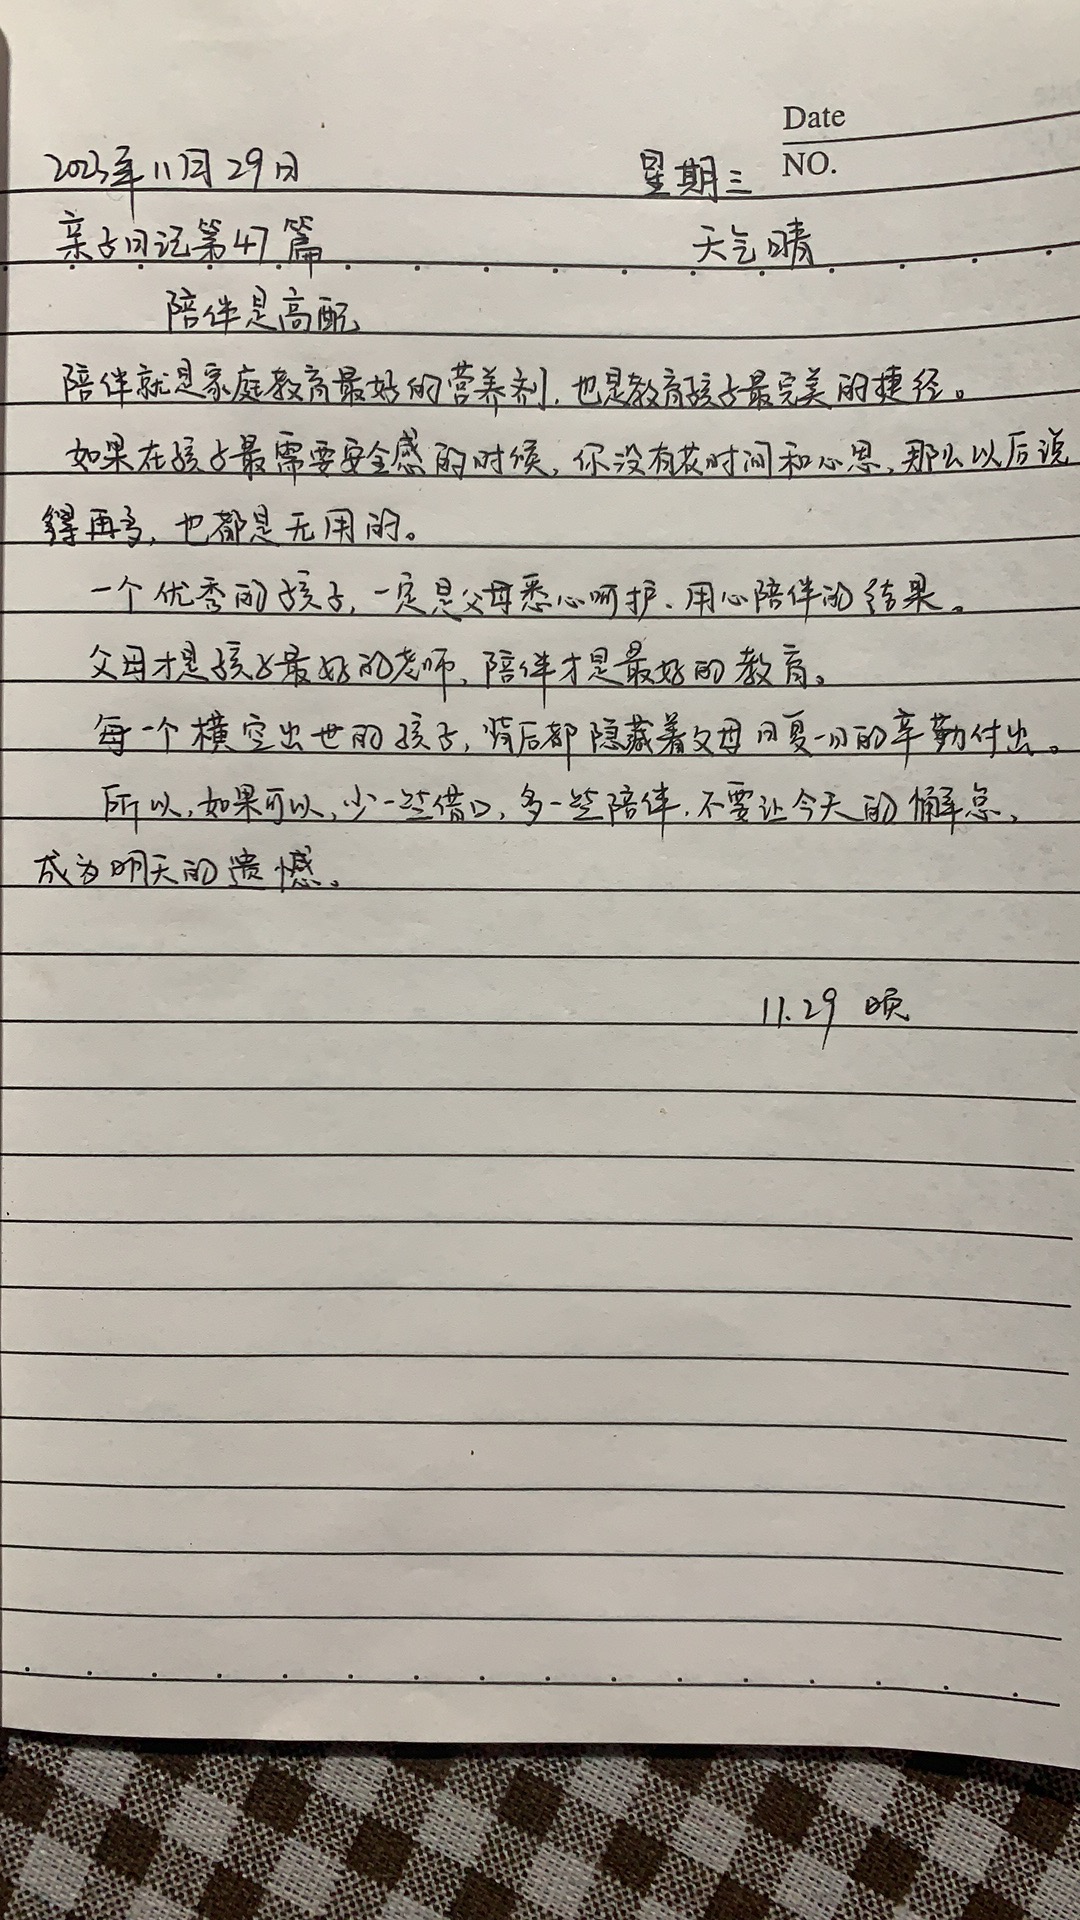 Date
2023年11月29日 星期三 NO.
亲子日记第47篇 天气晴
陪伴是高配
陪伴就是家庭教育最好的营养剂,也是教育孩子最完美的捷径。
如果在孩子最需要安全感的时候,你没有花时间和心思,那么以后说
得再多,也都是无用的。
一个优秀的孩子,一定是父母悉心呵护、用心陪伴的结果。
父母才是孩子最好的老师,陪伴才是最好的教育。
每一个横空出世的孩子,背后都隐藏着父母日复一日的辛勤付出。
所以,如果可以,少一些借口,多一些陪伴,不要让今天的懈怠,
成为明天的遗憾。
11.29